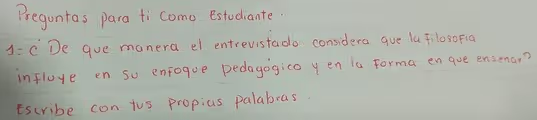 Preguntas para ti como Estudiante.
1= ¿ De que manera el entrevistado considera que la filosofía
influye en su enfoque pedagógico y en la forma en que enseñar?
Escribe con tus propias palabras.